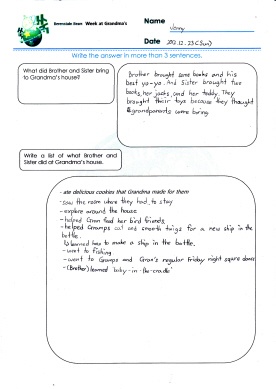 Berenstain Bears Week at Grandma's
Name
Jenny
Date 2012.12.23(Sun)
Write the answer in more than 3 sentences.
What did Brother and Sister bring
to Grandma's house?
Brother brought some books and his
best yo-yo. And Sister brought five
books, her jacks, and her teddy. They
brought their toys because they thought
grandparents were boring.
Write a list of what Brother and
Sister did at Grandma's house.
- ate delicious cookies that Grandma made for them
- saw the room where they had to stay
- explore around the house
- helped Gran feed her bird friends
- helped Gramps cut and smooth twigs for a new ship in the
bottle.
↳ learned how to make a ship in the bottle.
- went to fishing
- went to Gramps and Gran's regular Friday night square dance
- (Brother) learned 'baby-in-the-cradle'